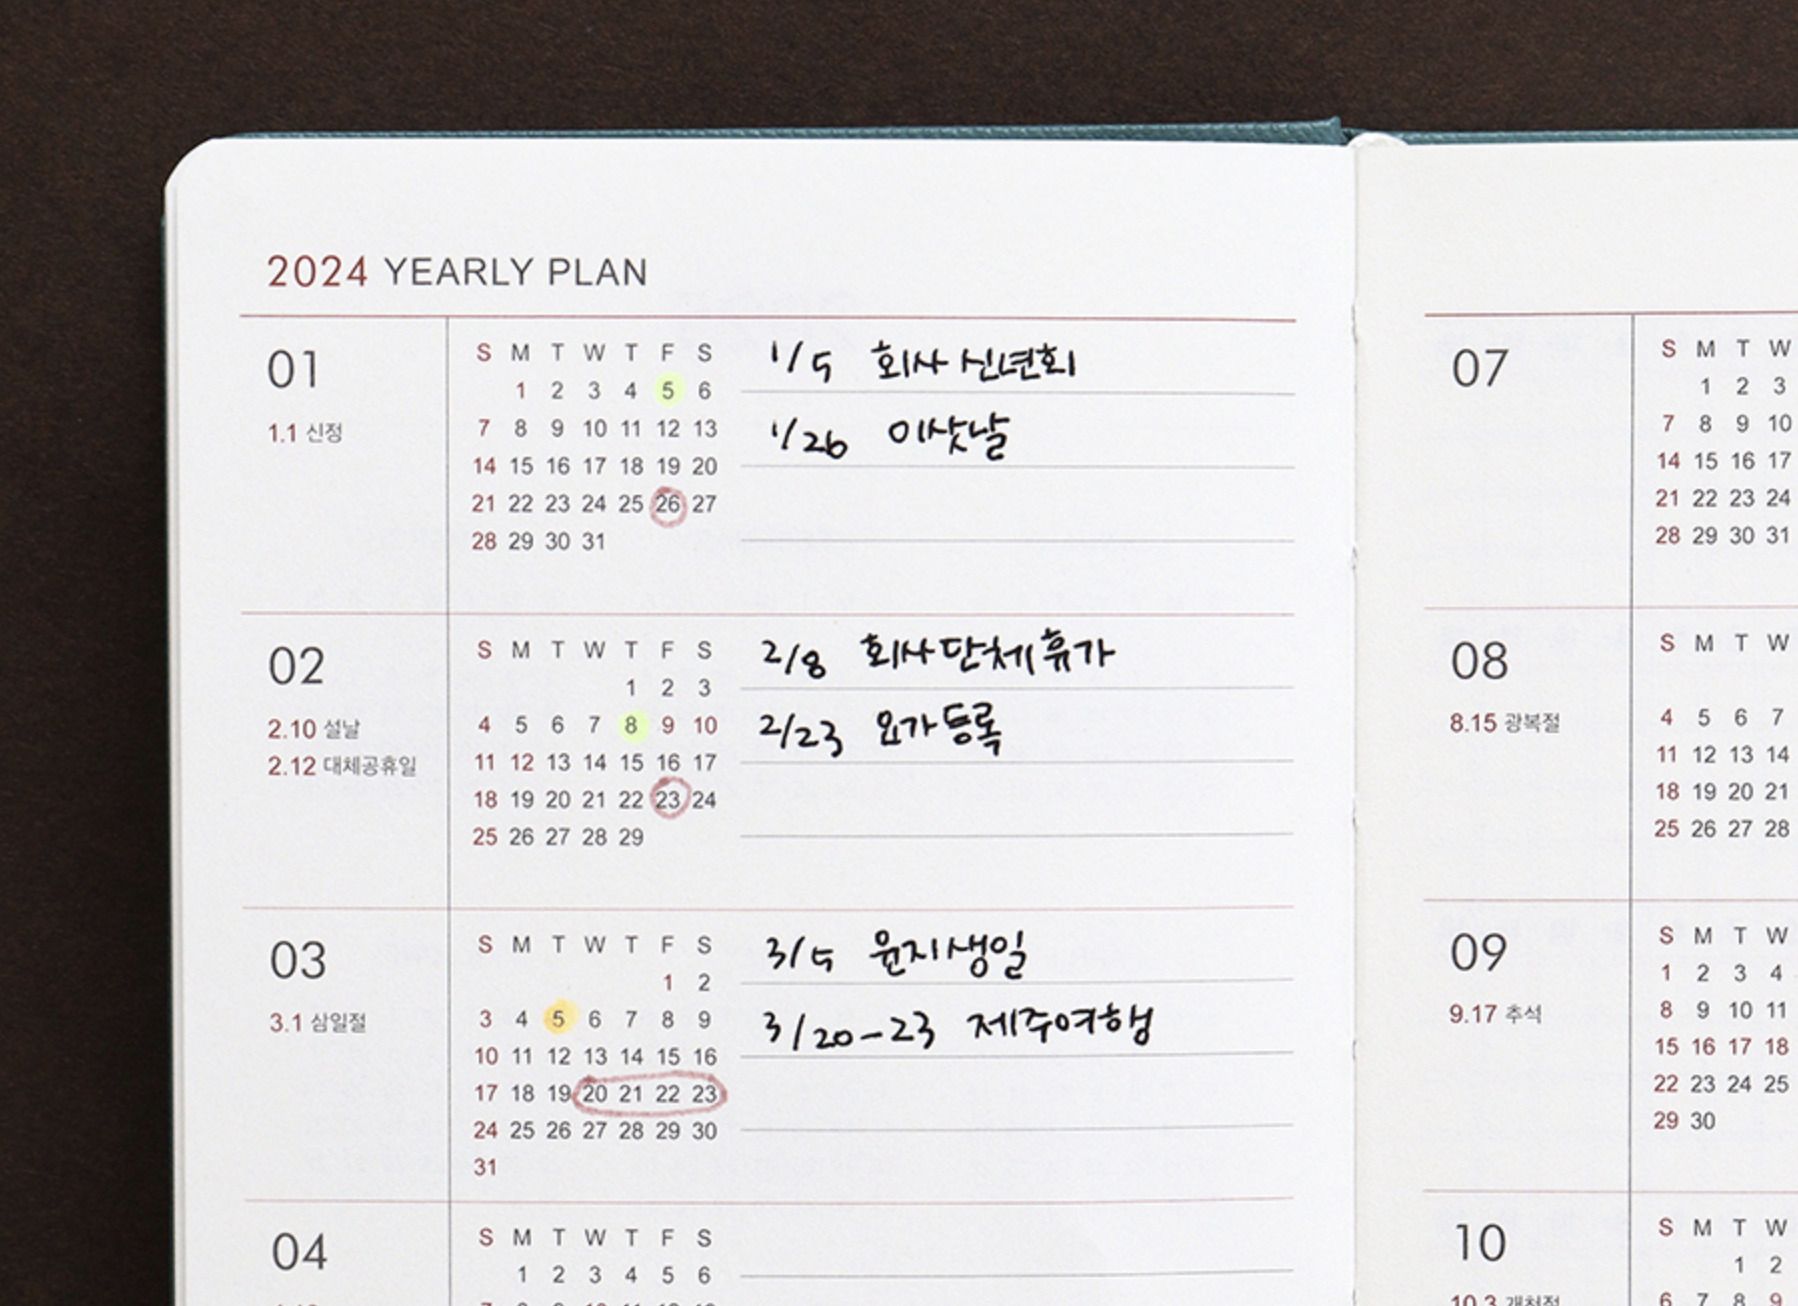 2024 YEARLY PLAN
01
1.1 신정
S M T W T F S
1 2 3 4 5 6
7 8 9 10 11 12 13
14 15 16 17 18 19 20
21 22 23 24 25 26 27
28 29 30 31
1/5 회사 신년회
1/26 이삿날
02
2.10 설날
2.12 대체공휴일
S M T W T F S
1 2 3
4 5 6 7 8 9 10
11 12 13 14 15 16 17
18 19 20 21 22 23 24
25 26 27 28 29
2/8 회사 단체 휴가
2/23 요가 등록
03
3.1 삼일절
S M T W T F S
1 2
3 4 5 6 7 8 9
10 11 12 13 14 15 16
17 18 19 20 21 22 23
24 25 26 27 28 29 30
31
3/5 윤지 생일
3/20-23 제주여행
04
S M T W T F S
1 2 3 4 5 6
07
S M T W
1 2 3
7 8 9 10
14 15 16 17
21 22 23 24
28 29 30 31
08
8.15 광복절
S M T W
4 5 6 7
11 12 13 14
18 19 20 21
25 26 27 28
09
9.17 추석
S M T W
1 2 3 4
8 9 10 11
15 16 17 18
22 23 24 25
29 30
10
10.3 개천절
S M T W
1 2
6 7 8 9